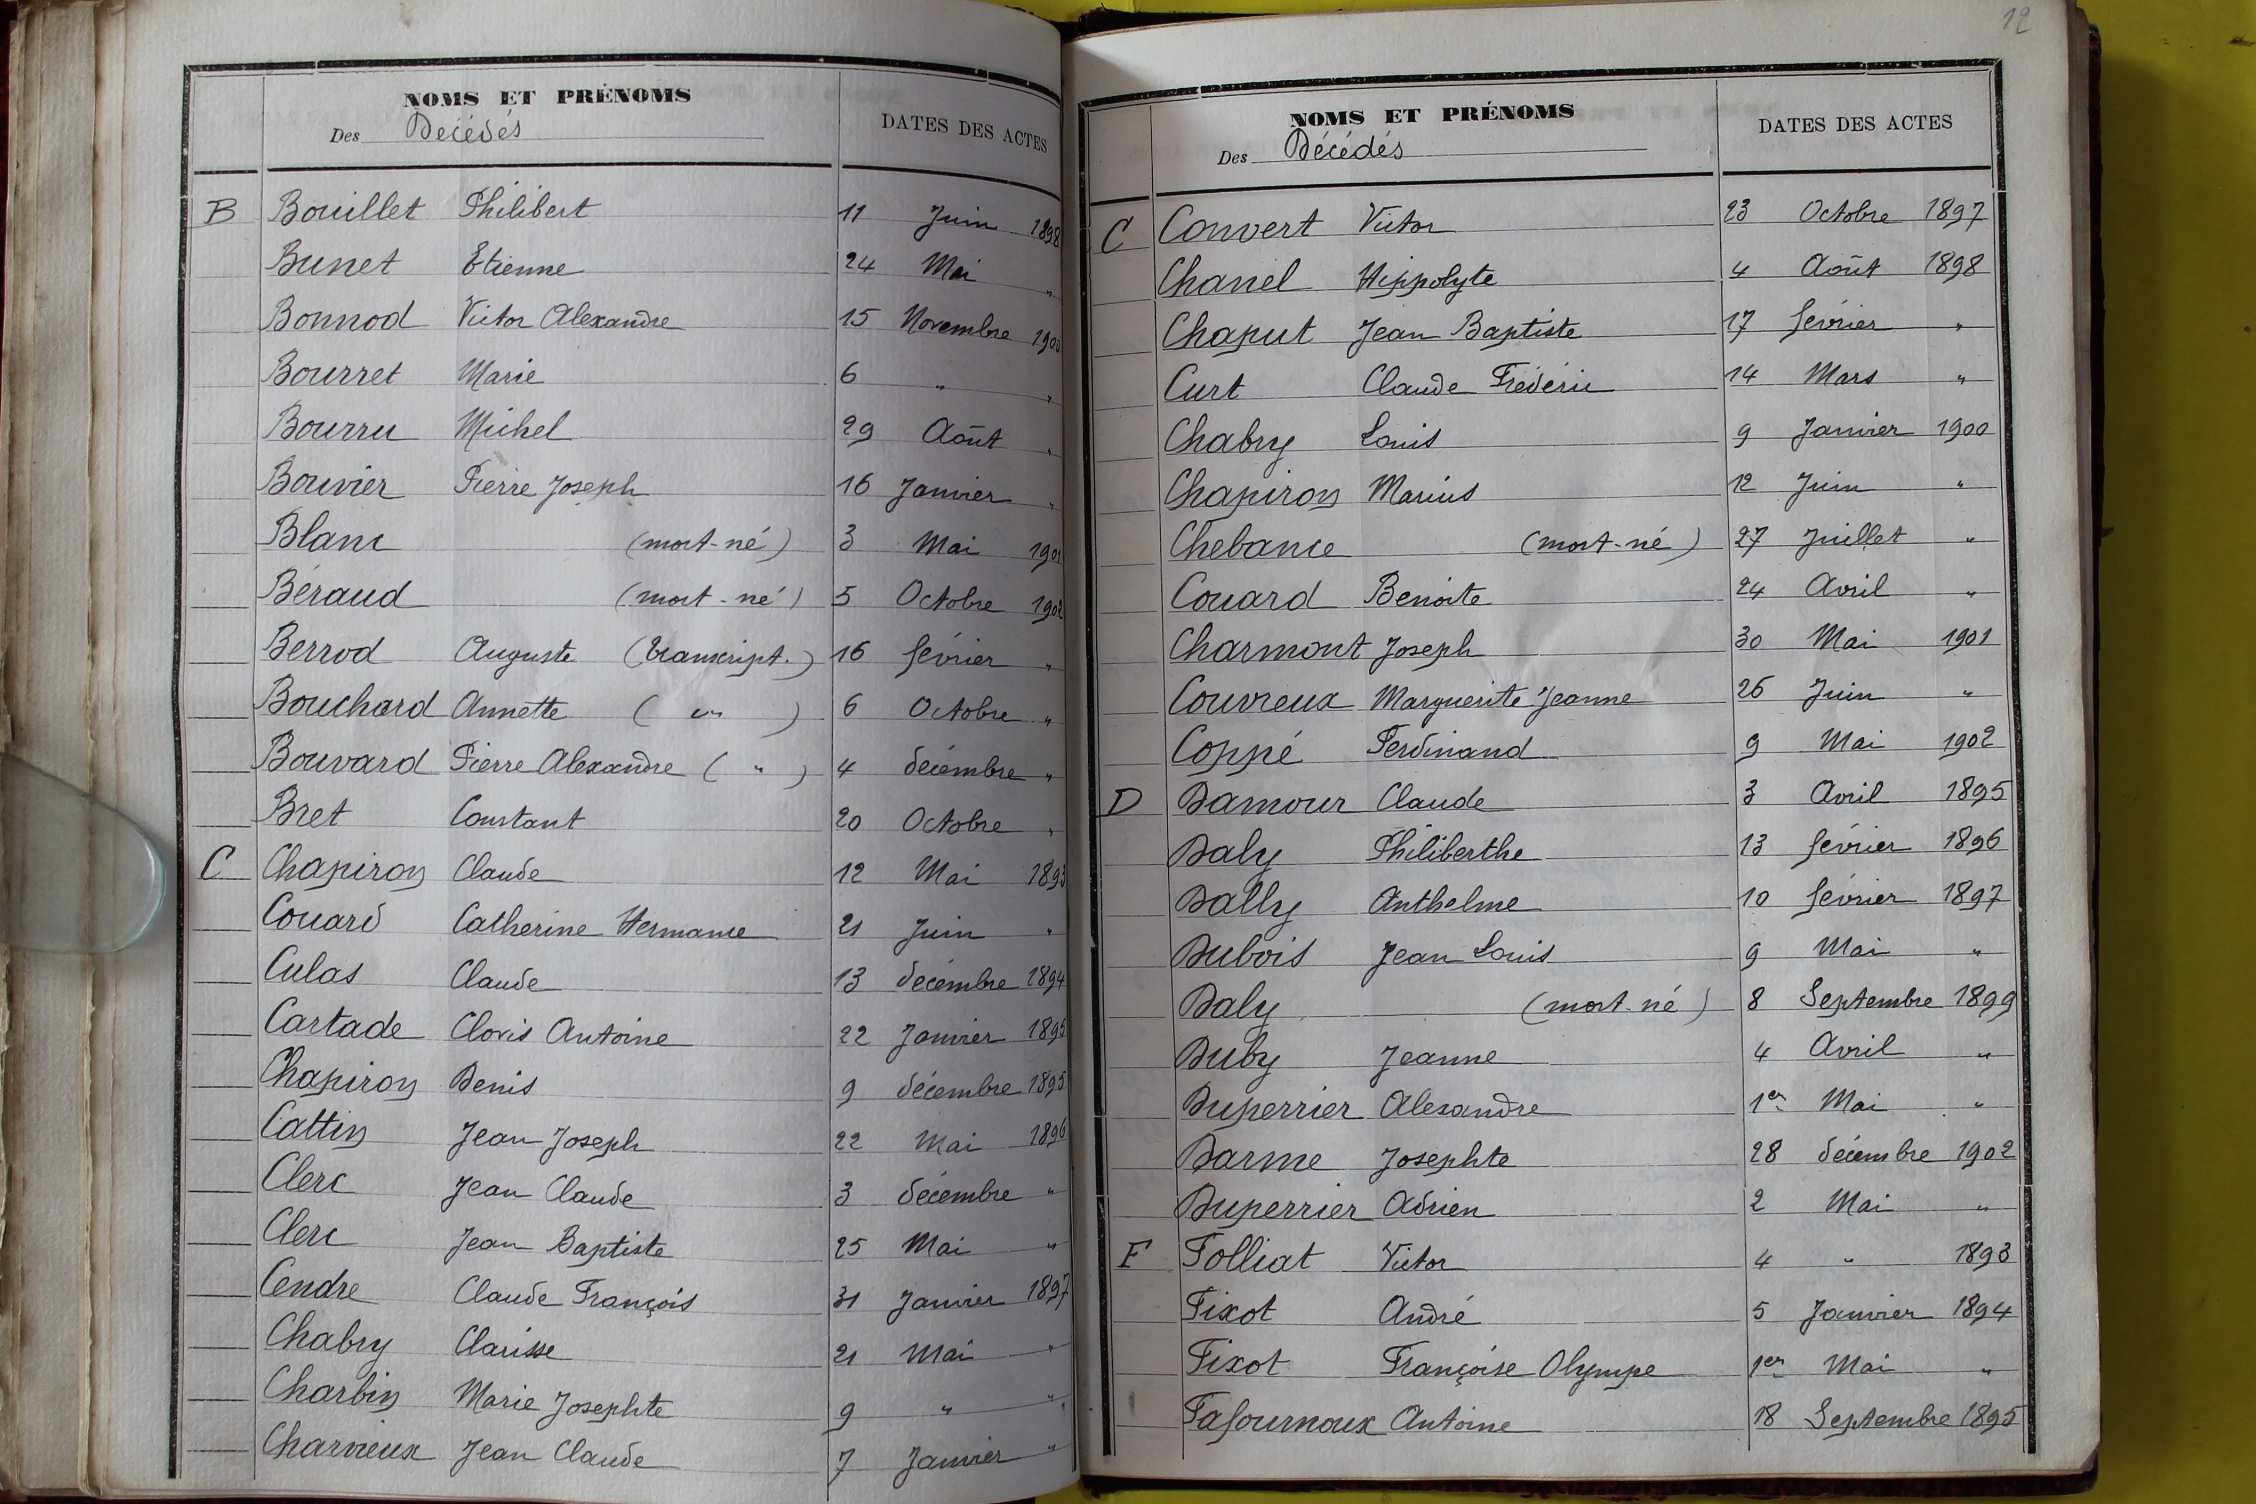 NOMS ET PRÉNOMS
Des Décédés
DATES DES ACTES
B Bouillet Philibert 11 Juin 1898
Bunet Etienne 24 Mai "
Bonnod Victor Alexandre 15 Novembre 1900
Bourret Marie 6 " "
Bourru Michel 29 Août "
Bouvier Pierre Joseph 16 Janvier "
Blanc (mort-né) 3 Mai 1901
Béraud (mort-né) 5 Octobre 1902
Berrod Auguste (transcript.) 16 février "
Bouchard Annette ( " ) 6 Octobre "
Bouvard Pierre Alexandre ( " ) 4 décembre "
Bret Constant 20 Octobre "
C Chapiron Claude 12 Mai 1893
Couard Catherine Hermance 21 Juin "
Culas Claude 13 décembre 1894
Cartade Clovis Antoine 22 Janvier 1895
Chapiron Denis 9 décembre 1895
Cattin Jean Joseph 22 Mai 1896
Clerc Jean Claude 3 décembre "
Clerc Jean Baptiste 25 Mai "
Cendre Claude François 31 Janvier 1897
Chabry Clarisse 21 Mai "
Charbin Marie Josephte 9 " "
Charvieux Jean Claude 7 Janvier "
12
NOMS ET PRÉNOMS
Des Décédés
DATES DES ACTES
C Convert Victor 23 Octobre 1897
Chanel Hippolyte 4 Août 1898
Chaput Jean Baptiste 17 février "
Curt Claude Frédéric 14 Mars "
Chabry Louis 9 Janvier 1900
Chapiron Marius 12 Juin "
Chebance (mort-né) 27 Juillet "
Couard Benoite 24 Avril "
Charmont Joseph 30 Mai 1901
Couvreux Marguerite Jeanne 26 Juin "
Coppé Ferdinand 9 Mai 1902
D Damour Claude 3 Avril 1895
Daly Philiberthe 13 février 1896
Dally Anthelme 10 février 1897
Dubois Jean Louis 9 Mai "
Daly (mort-né) 8 Septembre 1899
Duby Jeanne 4 Avril "
Duperrier Alexandre 1er Mai "
Darme Josephte 28 décembre 1902
Duperrier Adrien 2 Mai "
F Folliat Victor 4 " 1893
Fixot André 5 Janvier 1894
Fixot Françoise Olympe 1er Mai "
Fafournoux Antoine 18 Septembre 1895